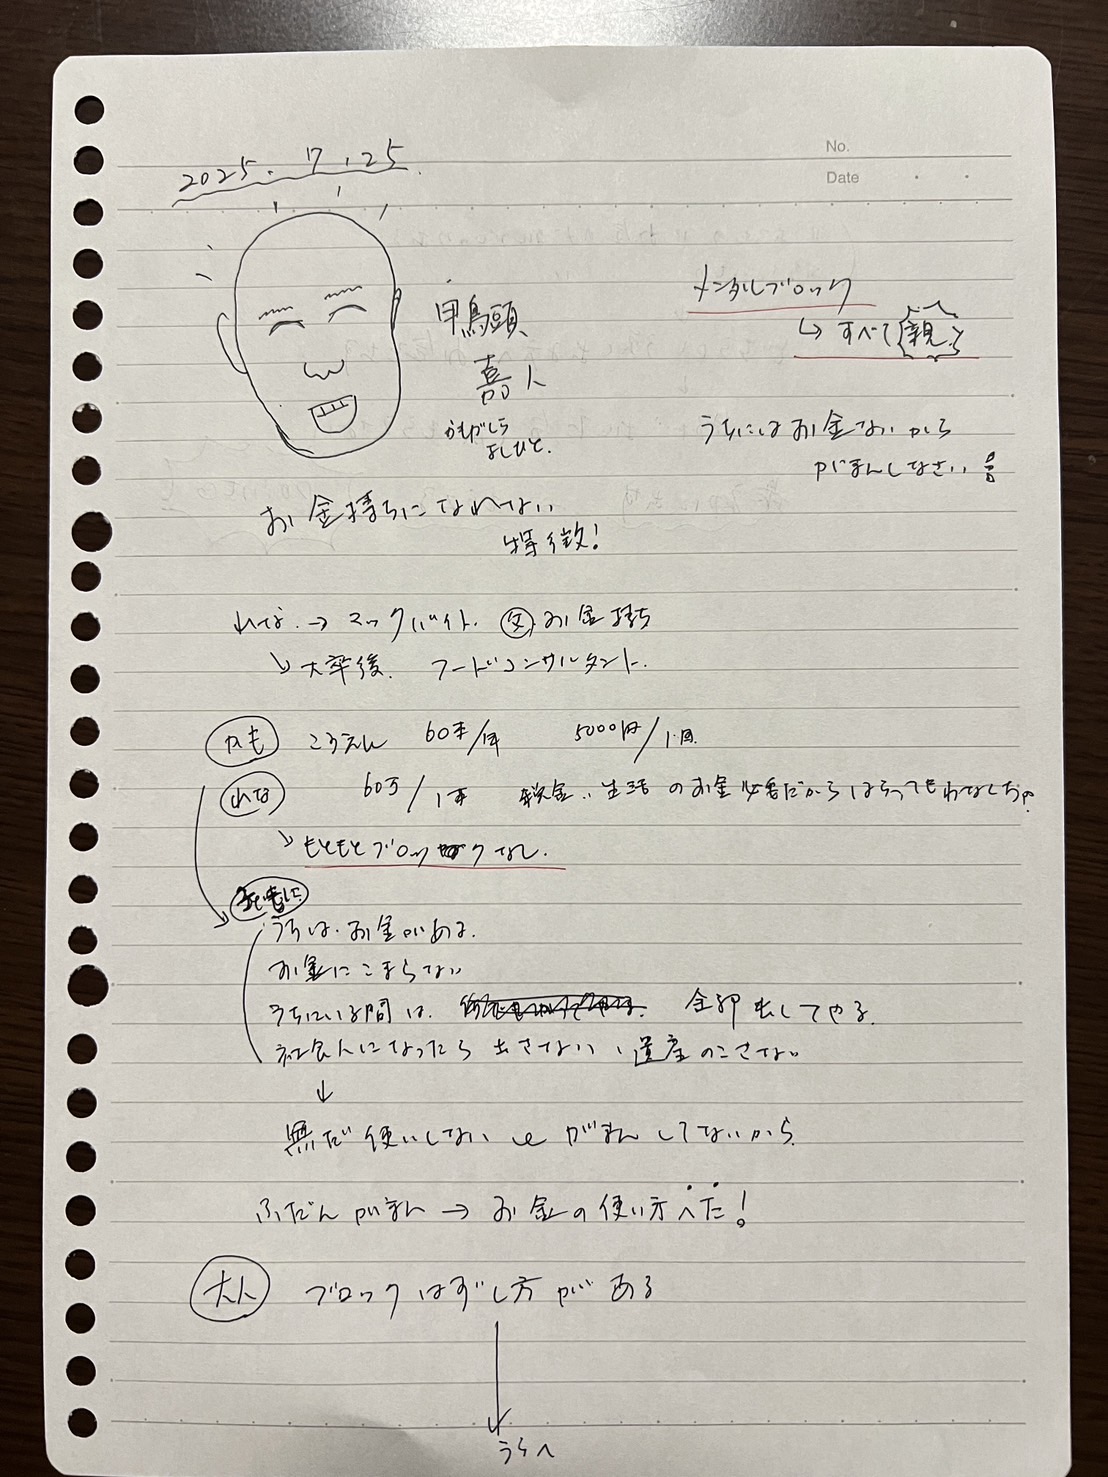 No.
Date
2025.7.25
鴨頭
嘉人
かもがしら
よしひと.
メンタルブロック
↳ すべて親
うちにはお金ないから
がまんしなさい
お金持ちになれない
特徴!
れな → マックバイト. 父 お金持ち
↘ 大卒後. フードコンサルタント.
かも こうえん 60万/年 5000円/1回
れな 60万/1年 税金、生活のお金必要だからはらってもわなしお
↘ もともとブロックなし.
子どもに
うちは、お金がある.
お金にこまらない
うちにいる間は. 全部出してやる.
社会人になったら出さない、遺産のこさない
↓
無だ使いしない がまんしてないから
ふだんがまん → お金の使い方へた!
大人 ブロックはずし方がある
うらへ